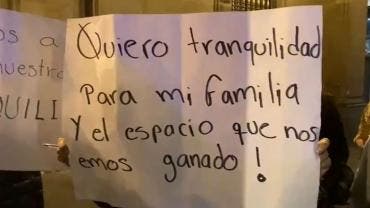 os a
nuestra
Quiero tranquilidad
Para mi familia
Y el espacio que nos
emos ganado!